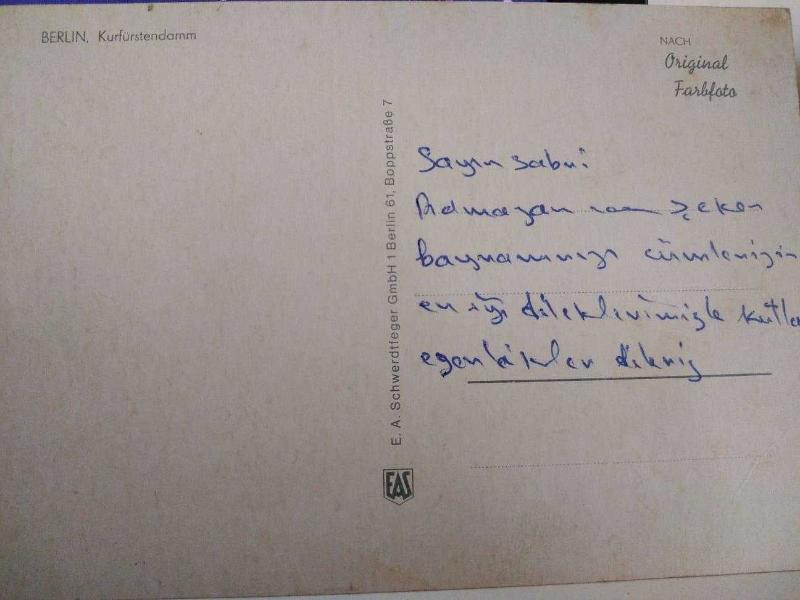 BERLIN, Kurfürstendamm
NACH
Original
Farbfoto
E. A. Schwerdtfeger GmbH 1 Berlin 61, Boppstraße 7
EAS
Sayın Sabri
şeker
bayramınızı cümlenizin
en iyi dileklerimizle kutla
dileriz